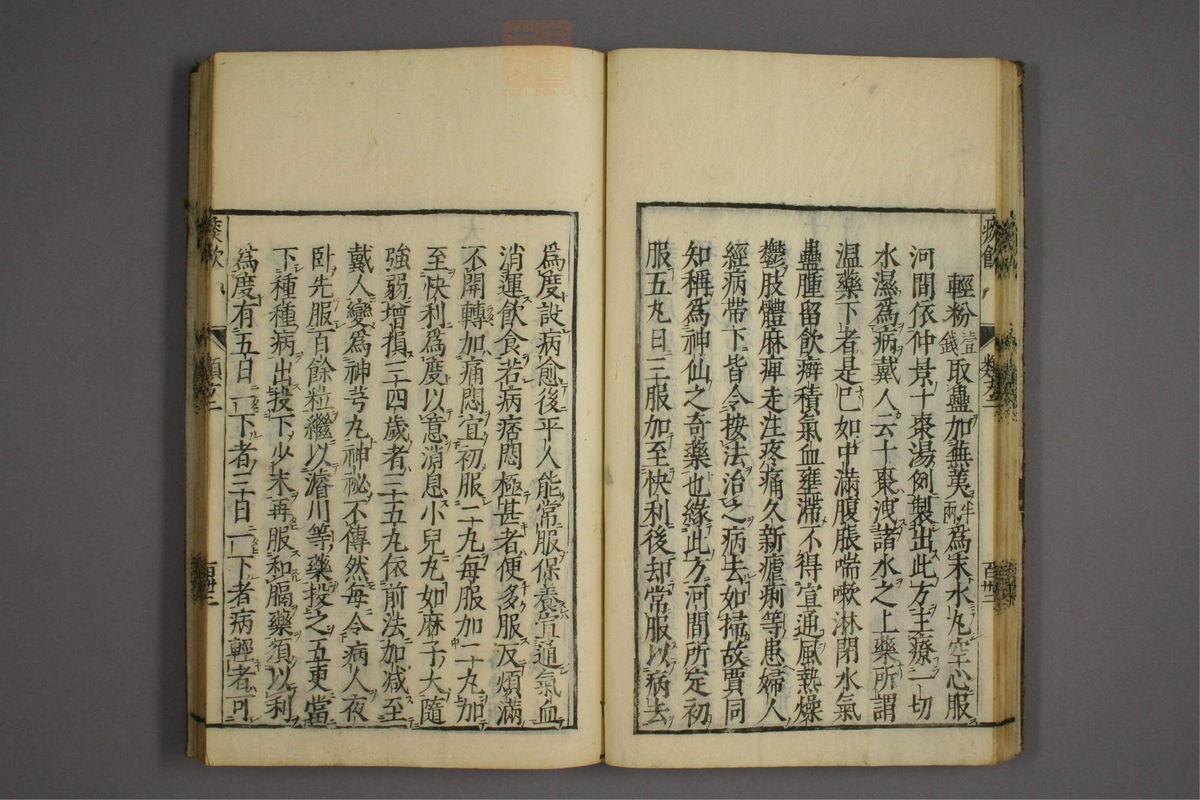 輕粉壹錢取蠱加蕪荑半兩為末水丸空心服
河間依仲景十棗湯例製出此方主療一切
水濕為病戴人云十棗洩諸水之上藥所謂
温藥下者是巳如中滿腹脹喘嗽淋閉水氣
蠱腫留飲癖積氣血壅滯不得宣通風熱燥
鬱肢體麻痺走注疼痛久新瘧痢等患婦人
經病帶下皆令按法治之病去如掃故賈同
知稱為神仙之奇藥也緣此方河間所定初
服五丸日三服加至快利後却常服以病去
為度設病愈後平人能常服保養宣通氣血
消運飲食若病痞悶極甚者便多服反煩滿
不開轉加痛悶宜初服二丸每服加二丸加
至快利為度以意消息小兒丸如麻子大隨
強弱增損三四歲者三五丸依前法加减至
戴人變為神芎丸神祕不傳然每令病人夜
卧先服百餘粒繼以濬川等藥投之五更當
下種種病出投下少未再服和膈藥須以利
為度有五日一下者三日一下者病輕者可
痰飲
類五二
百卅二